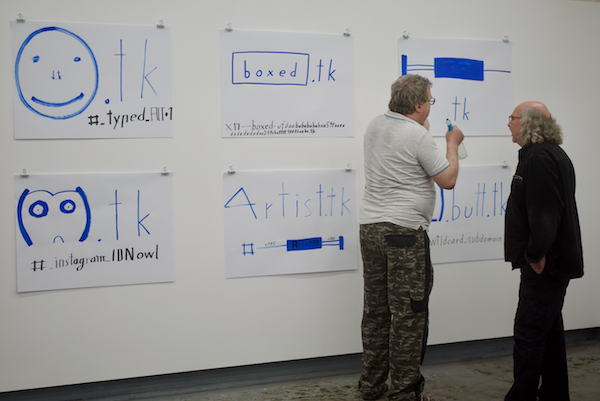 .tk
#_typed_Alt+1
boxed.tk
tk
.tk
#_instagram_IDNowl
Artist.tk
#
).butt.tk
wildcard_subdomain